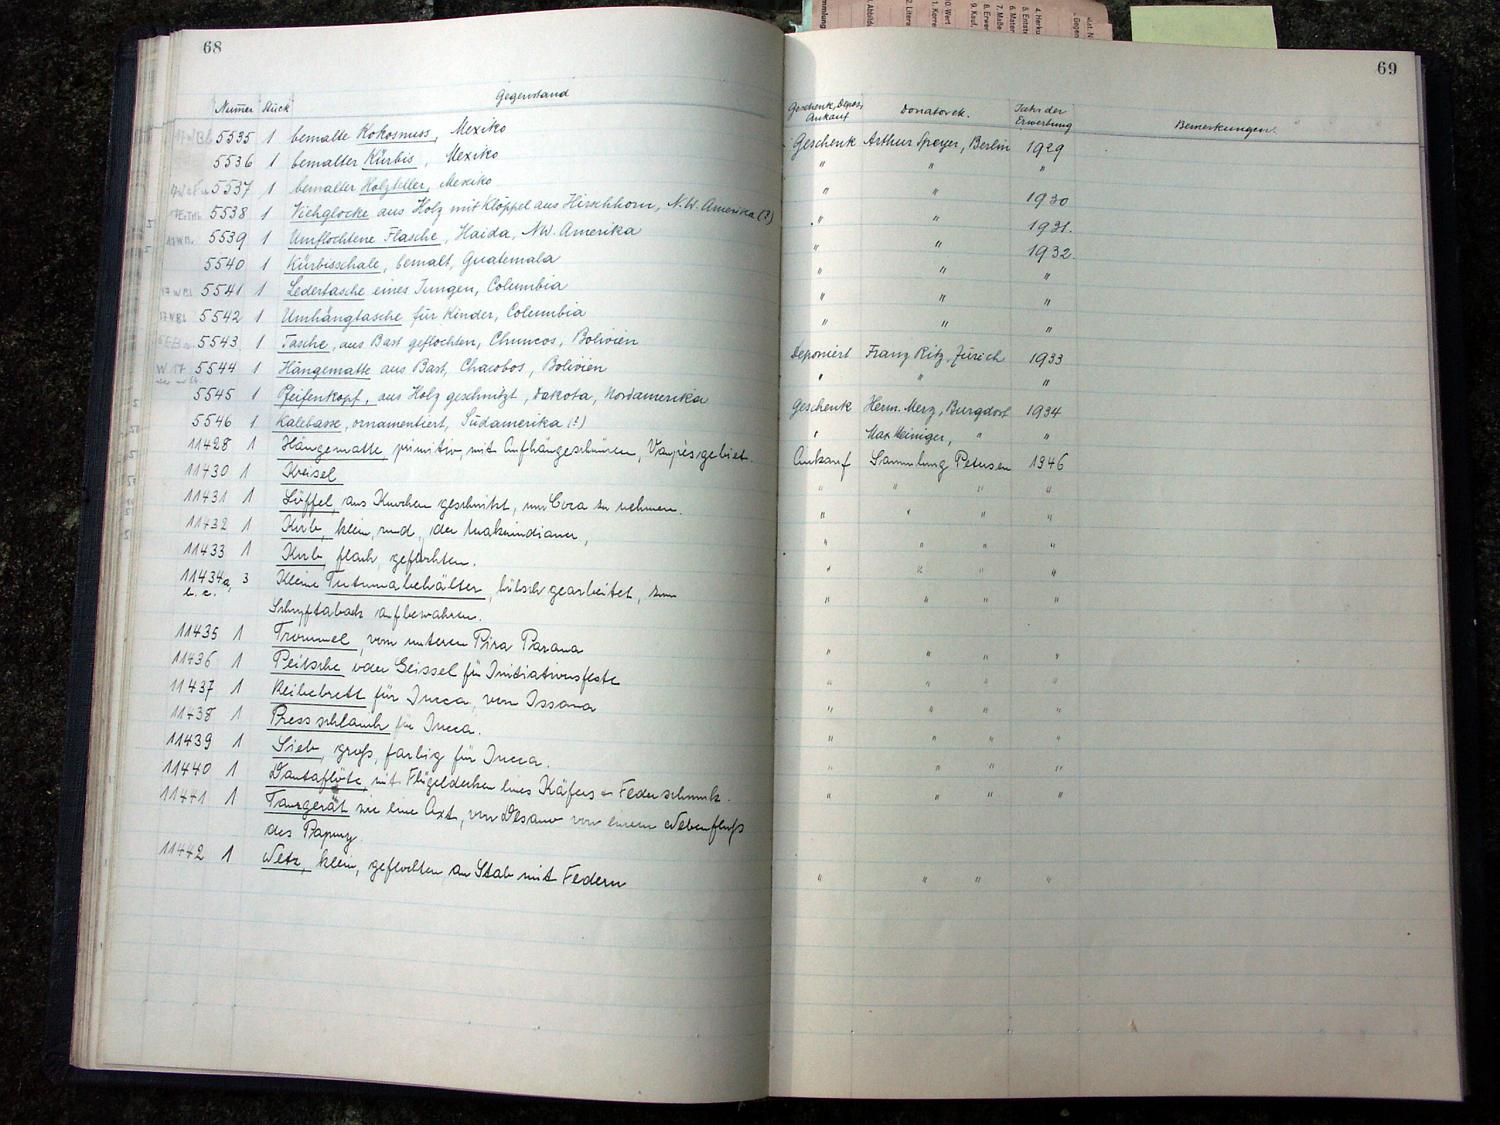 68
Numer Stück Gegenstand
5535 1 bemalte Kokosnuss, Mexiko
5536 1 bemalter Kürbis, Mexiko
5537 1 bemalter Holzteller, Mexiko
5538 1 Viehglocke aus Holz mit Klöppel aus Hirschhorn, N.W. Amerika (?)
5539 1 Umflochtene Flasche, Haida, NW. Amerika
5540 1 Kürbisschale, bemalt, Guatemala
5541 1 Ledertasche eines Jungen, Columbia
5542 1 Umhängtasche für Kinder, Columbia
5543 1 Tasche, aus Bast geflochten, Chuncos, Bolivien
5544 1 Hängematte aus Bast, Chacobos, Bolivien
5545 1 Pfeifenkopf, aus Holz geschnitzt, Dakota, Nordamerika
5546 1 Kalebasse, ornamentiert, Südamerika (?)
11428 1 Hängematte, primitiv, mit Aufhängeschnüren, Vaupésgebiet.
11430 1 Kreisel
11431 1 Löffel, aus Knochen geschnitzt, um Coca zu nehmen.
11432 1 Korb, klein, rund, der Makuindianer,
11433 1 Korb, flach, geflochten.
11434a, 3 Kleine Tutumabehälter, hübsch gearbeitet, zum
b. c. Schnupftabak aufbewahren.
11435 1 Trommel, vom unteren Pira Parana
11436 1 Peitsche oder Geissel für Initiationsfeste
11437 1 Reibebrett für Jucca, vom Issana
11438 1 Pressschlauch für Jucca.
11439 1 Sieb, gross, farbig für Jucca.
11440 1 mit Flügeldecken eines Käfers & Federschmuck.
11441 1 Tanzgerät wie eine Axt, von Desano von einem Nebenfluss
des Papury
11442 1 Netz, klein, geflochten an Stab mit Federn
69
Geschenk, Depos, Ankauf Donator ek. Jahr der Erwerbung Bemerkungen.
Geschenk Arthur Speyer, Berlin 1929
" " "
" " 1930
" " 1931.
" " 1932.
" " "
" " "
" " "
Deponiert Franz Ritz, Zürich 1933
" " "
Geschenk Herm. Merz, Burgdorf 1934
" Max Heiniger, " "
Ankauf Sammlung Petersen 1946
" " " "
" " " "
" " " "
" " " "
" " " "
" " " "
" " " "
" " " "
" " " "
" " " "
" " " "
" " " "
" " " "